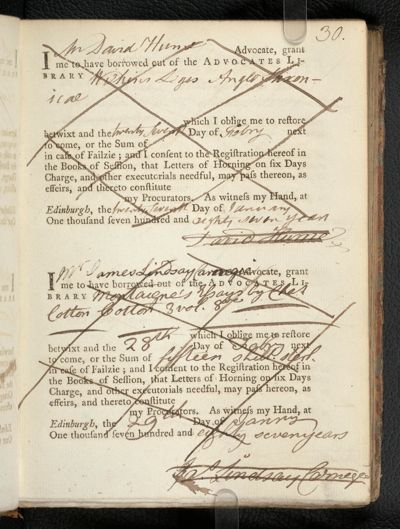 30.
I Mr David Hume Advocate, grant
me to have borrowed out of the ADVOCATES LI-
BRARY Wilkins Leges Anglo Saxon-
icae
which I oblige me to restore
betwixt and the twenty Day of next
to come, or the Sum of
in case of Failzie ; and I consent to the Registration hereof in
the Books of Session, that Letters of Horning on six Days
Charge, and other executorials needful, may pass thereon, as
effeirs, and thereto constitute
my Procurators. As witness my Hand, at
Edinburgh, the twenty seventh Day of January
One thousand seven hundred and eighty seven years
David Hume
I Mr James Lindsay Carnegie Advocate, grant
me to have borrowed out of the ADVOCATES LI-
BRARY Montaigne's Essays by Chas
Cotton 3 vol. 8vo
which I oblige me to restore
betwixt and the 28th Day of next
to come, or the Sum of fifteen
in case of Failzie ; and I consent to the Registration hereof in
the Books of Session, that Letters of Horning on six Days
Charge, and other executorials needful, may pass thereon, as
effeirs, and thereto constitute
my Procurators. As witness my Hand, at
Edinburgh, the 29th Day of Janry
One thousand seven hundred and eighty seven years
Jas. Lindsay Carnegie